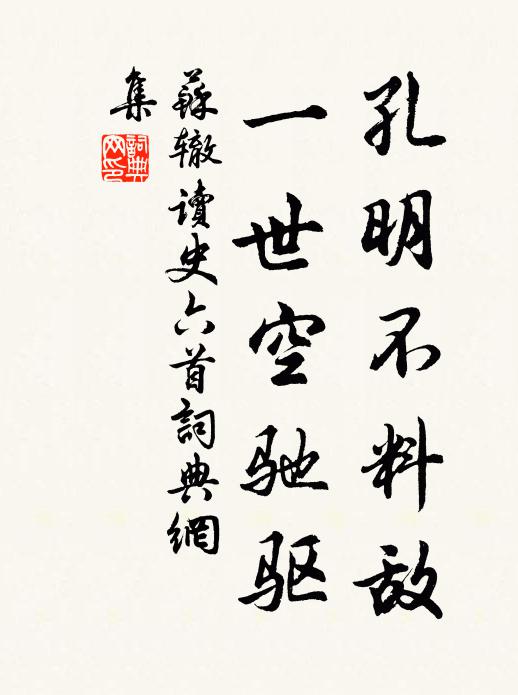 孔明不料敌
一世空驰驱
蘇辙讀史六首詞典網
集
詞典網印